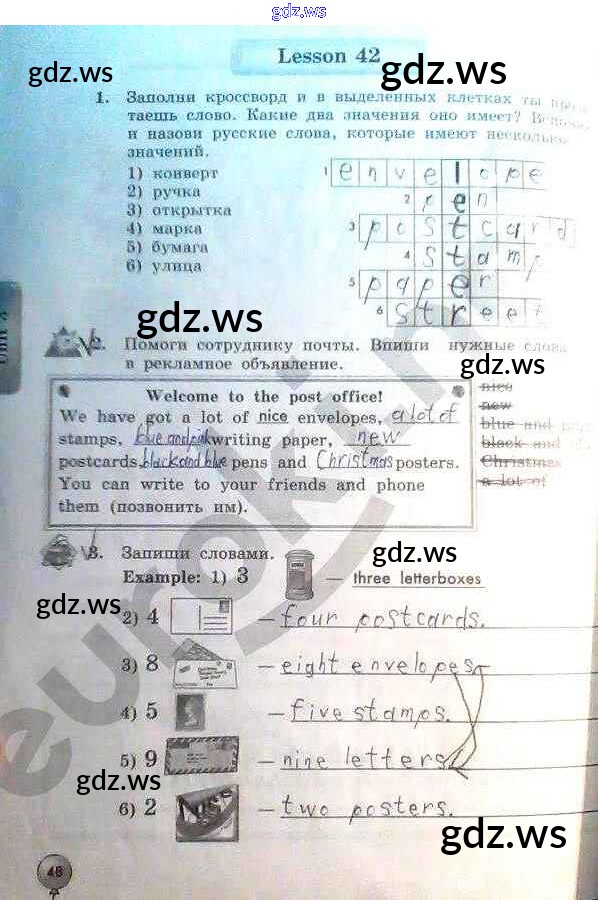 gdz.ws
Lesson 42
gdz.ws
gdz.ws
1. Заполни кроссворд и в выделенных клетках ты
таешь слово. Какие два значения оно имеет?
и назови русские слова, которые имеют несколько
значений.
1) конверт
2) ручка
3) открытка
4) марка
5) бумага
6) улица
1 envelope
2 pen
3 postcard
4 stamp
5 paper
6 street
gdz.ws
2. Помоги сотруднику почты. Впиши нужные слова
в рекламное объявление.
gdz.ws
Welcome to the post office!
We have got a lot of nice envelopes, a lot of
stamps, blue and pink writing paper, new
postcards, black and blue pens and Christmas posters.
You can write to your friends and phone
them (позвонить им).
nice
new
blue and
black and
Christmas
a lot of
3. Запиши словами.
gdz.ws
Example: 1) 3 – three letterboxes
gdz.ws
2) 4 – four postcards.
3) 8 – eight envelopes
4) 5 – five stamps.
5) 9 – nine letters
gdz.ws
6) 2 – two posters.
gdz.ws
48
Unit 3
eurokin